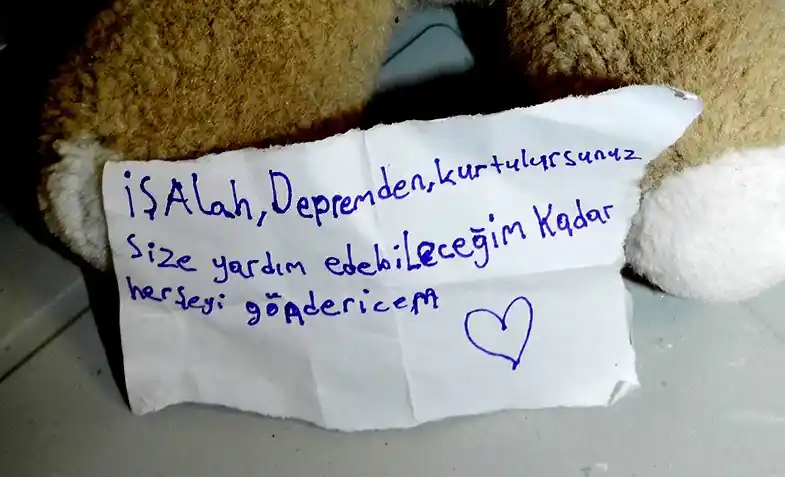 İŞAlah, Depremden, kurtulursunuz
Size yardım edebiLeceğim Kadar
herşeyi göndericem